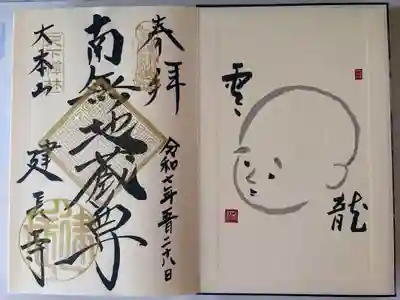 雲
龍
奉拝
令和七年五月二十八日
南無地蔵尊
大本山
建長寺